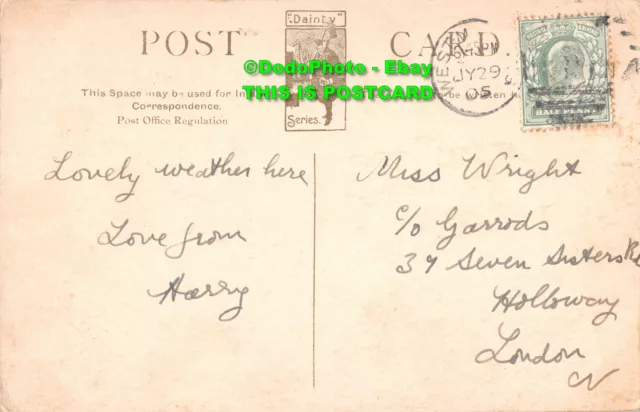 POST CARD
"Dainty"
Series.
©DodoPhoto - Ebay
THIS IS POSTCARD
This Space may be used for In
Correspondence.
Post Office Regulation
be written he
JY 29
05
HALFPENNY
Lovely weather here
Love from
Harry
Miss Wright
c/o Garrods
37 Seven Sisters Rd
Holloway
London
N